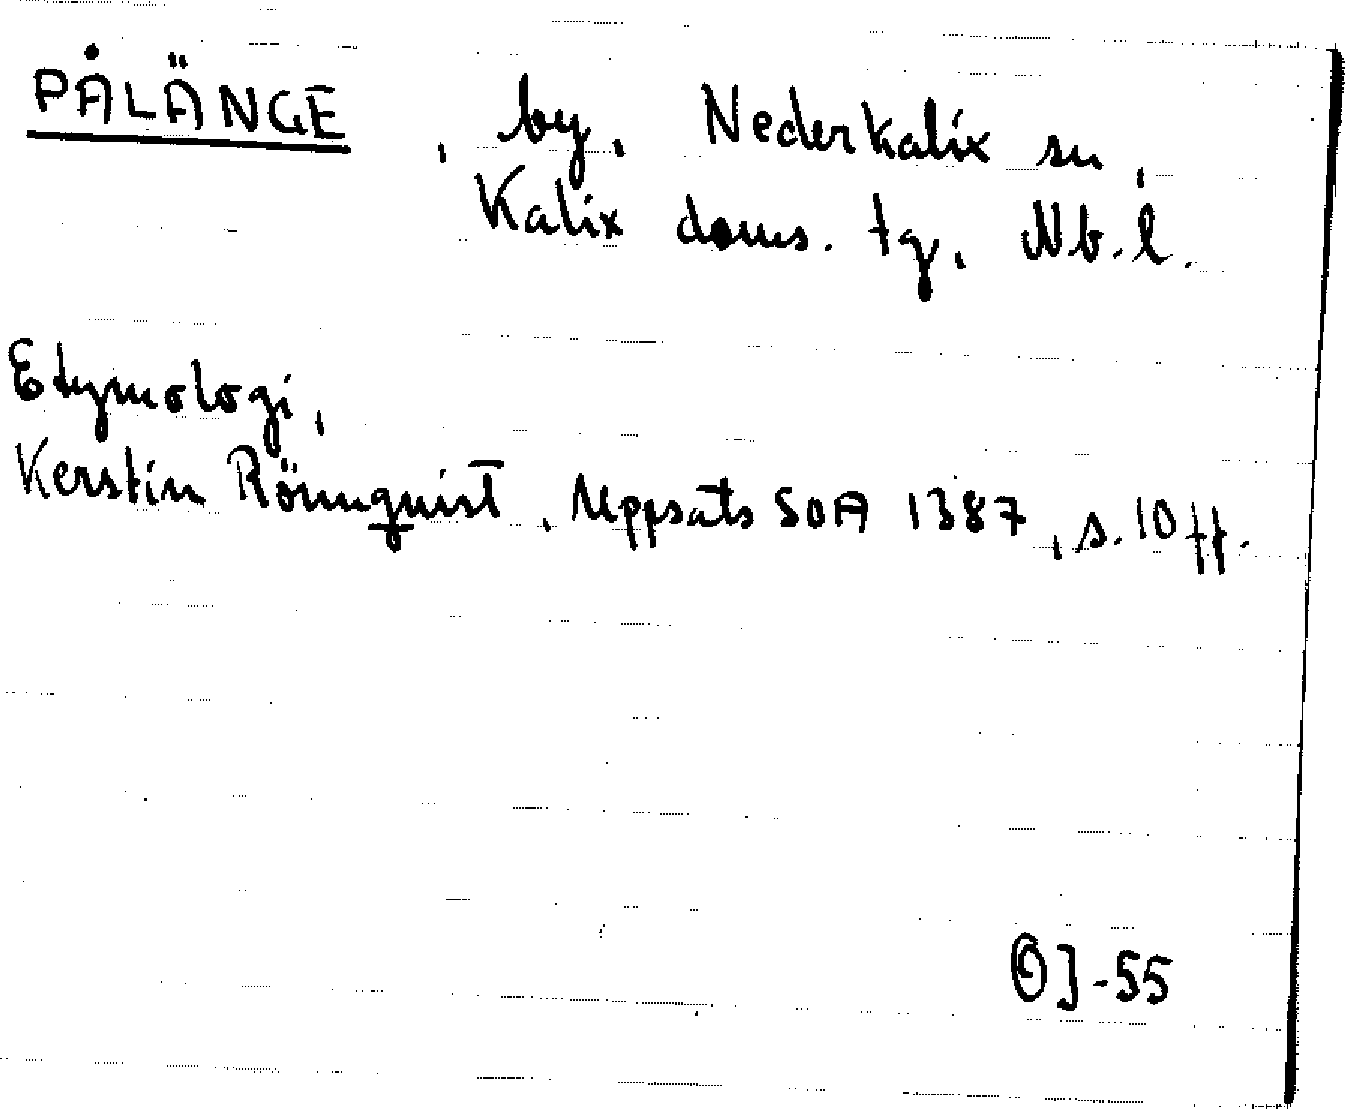 PÅLÄNGE, by, Nederkalix sn,
Kalix doms. tg, Nb.l.
Etymologi,
Kerstin Rönnquist, Uppsats SOA 1387, s. 10 ff.
OJ-55